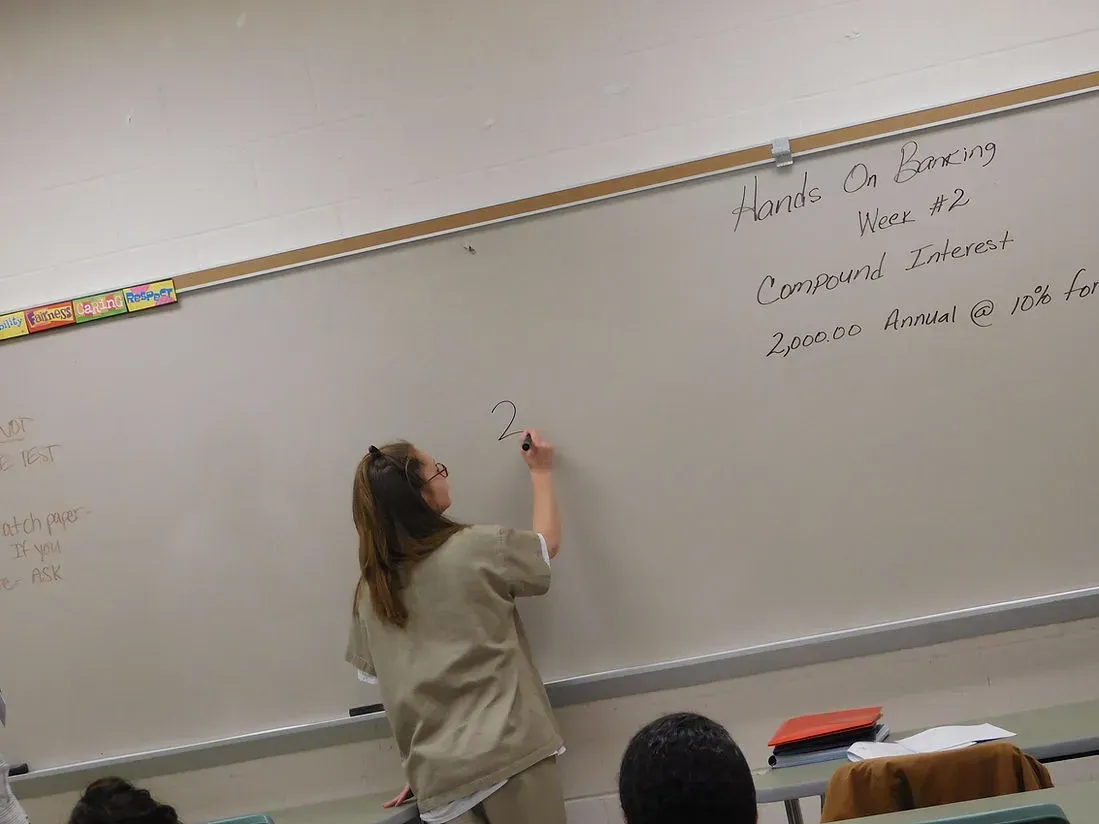 Hands On Banking
Week #2
Compound Interest
2,000.00 Annual @ 10% for
2
Fairness Caring Respect
NOT
TEST
paper-
If you
ASK